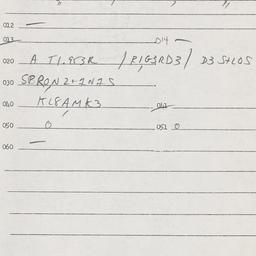 012 —
013 014 —
020 A T1.853R / R1G3RD3 / D3 S+LOS
030 SPRON2+1N1S
040 KL8AMK3 041
050 0 051 0
060 —